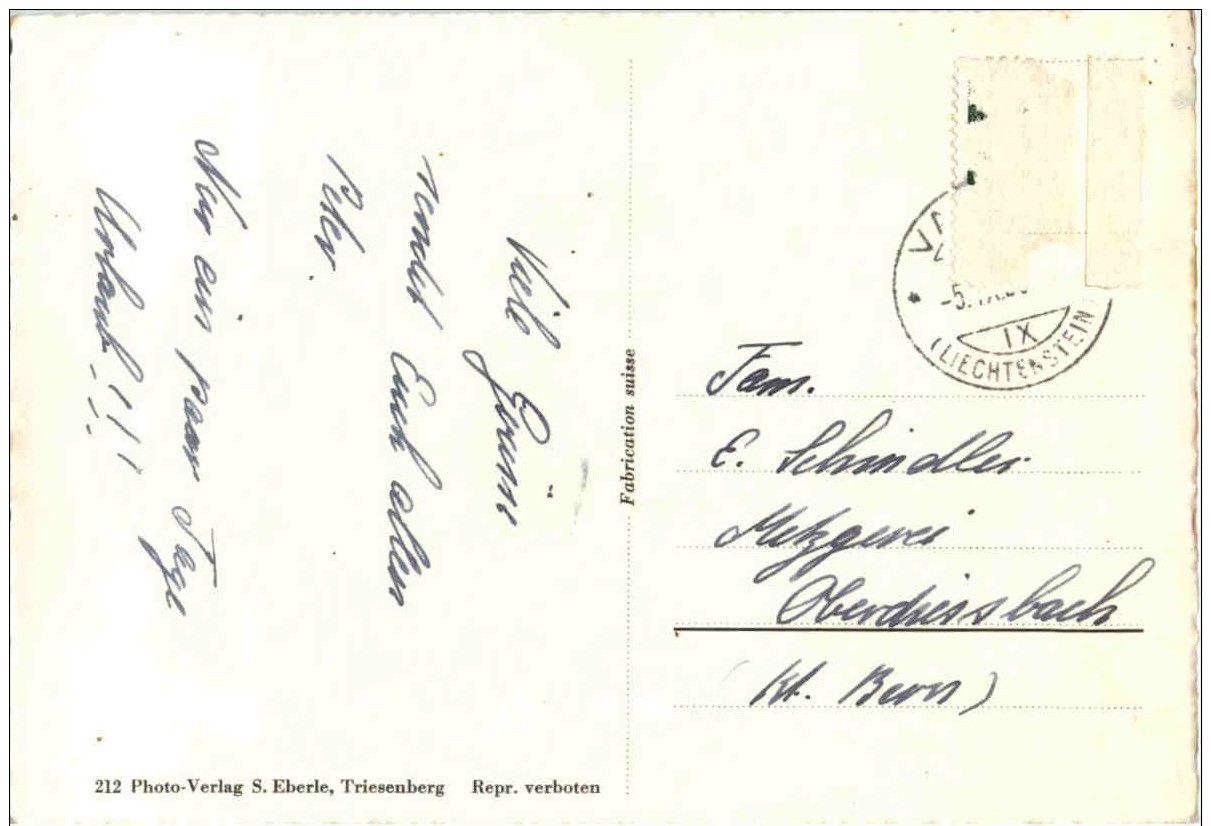 Viele Grüsse
sendet Euch allen
Peter.
Nur ein paar Tage
Urlaub!!!
212 Photo-Verlag S. Eberle, Triesenberg Repr. verboten
Fabrication suisse
-5.
IX
(LIECHTENSTEIN)
Fam.
E. Schindler
Metzgerei
Oberdiessbach
(Kt. Bern)